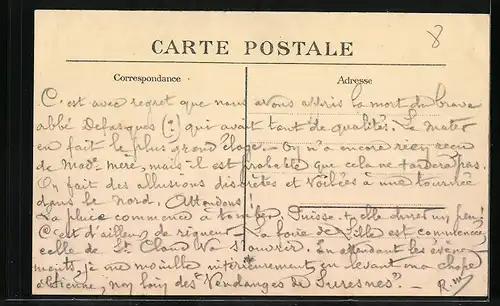 8
CARTE POSTALE
Correspondance
Adresse
C'est avec regret que nous avons appris la mort du brave
abbé Defasques (?) qui avait tant de qualités. Le Mater
en fait le plus grand éloge. - On n'a encore rien reçu
de Mad. mère, mais il est probable que cela ne tardera pas.
On fait des allusions discrètes et voilées à une tournée
dans le Nord. Attendons !
La pluie commence à tomber. Puisse-t-elle durer un peu !
C'est d'ailleurs de rigueur. La foire de Lille est commencée
celle de St. Cloud va s'ouvrir. En attendant les évène-
ments, je me mouille intérieurement en levant ma chope
à l'ienne, non loin des "Vendanges de Suresnes". -